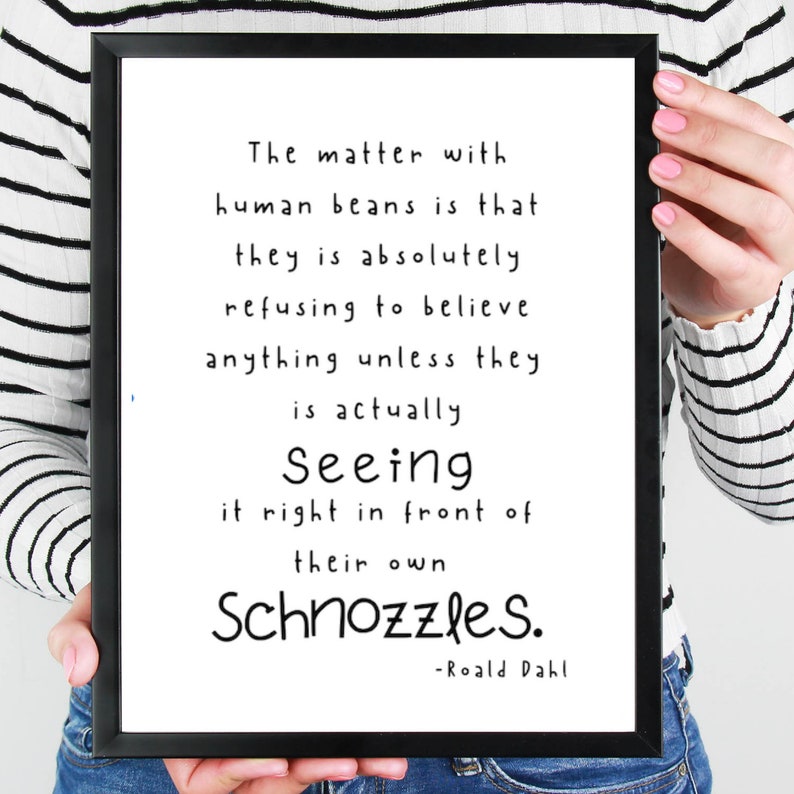 The matter with
human beans is that
they is absolutely
refusing to believe
anything unless they
is actually
Seeing
it right in front of
their own
Schnozzles.
-Roald Dahl